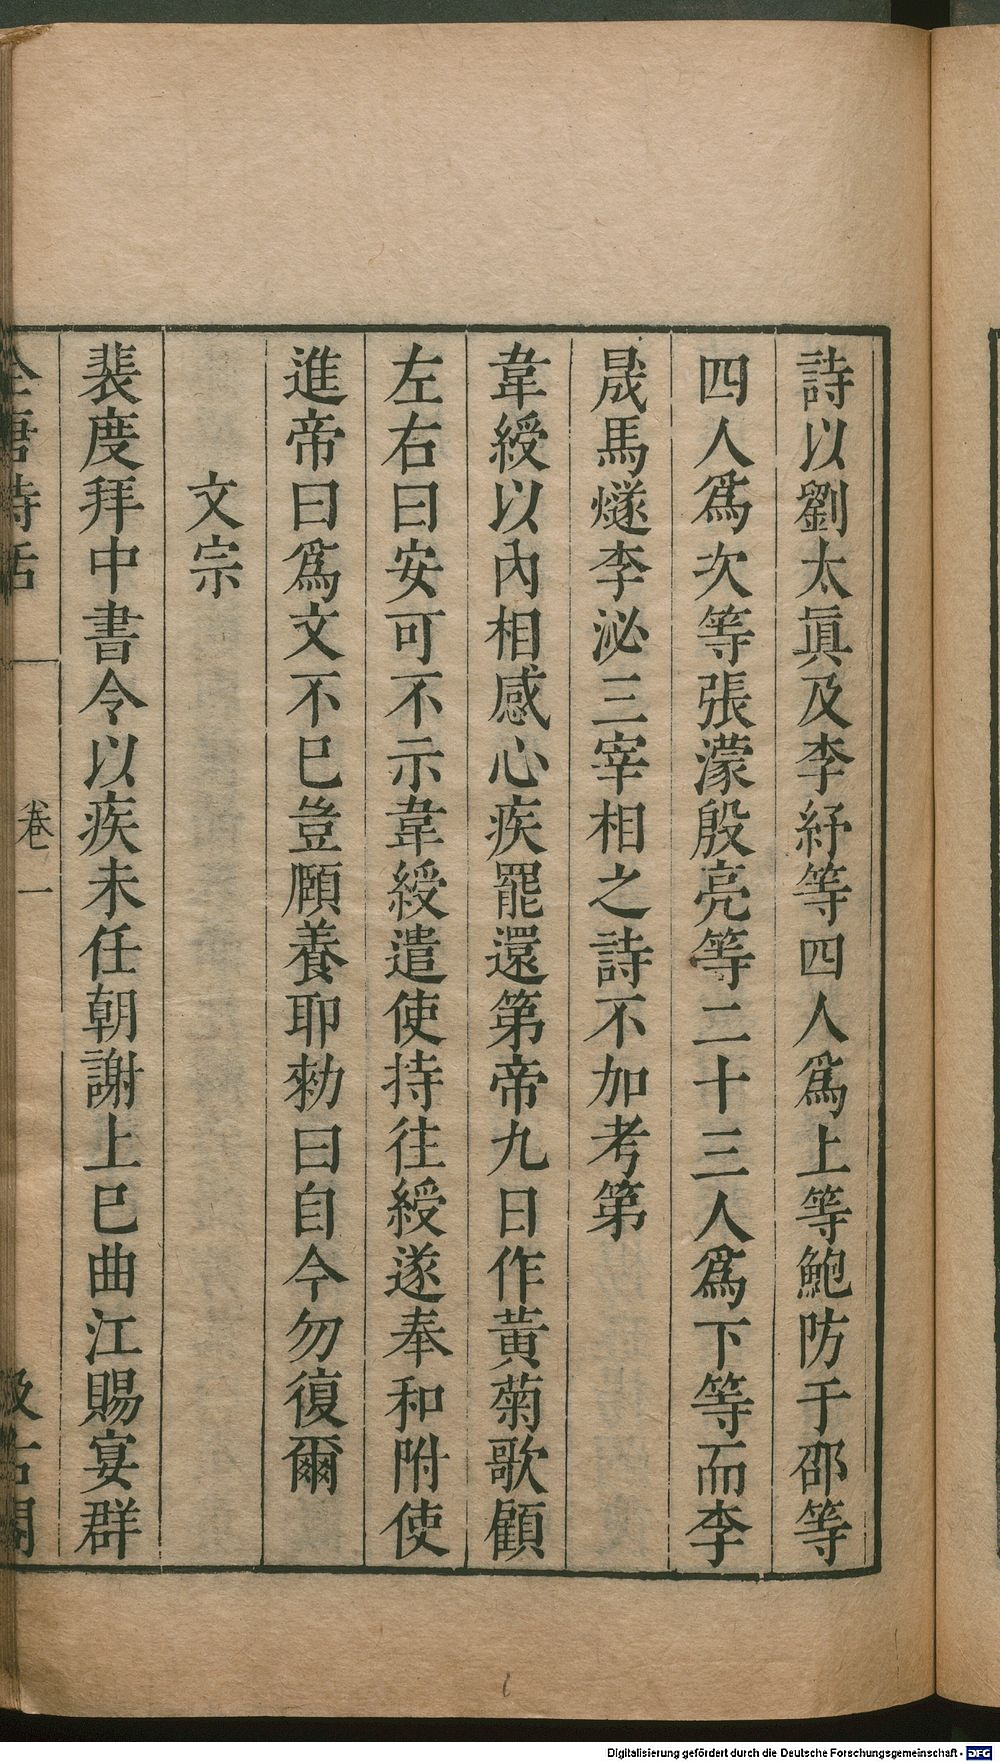 詩以劉太眞及李紓等四人爲上等鮑防于邵等
四人爲次等張濛殷亮等二十三人爲下等而李
晟馬燧李泌三宰相之詩不加考第
韋綬以內相感心疾罷還第帝九日作黃菊歌顧
左右曰安可不示韋綬遣使持往綬遂奉和附使
進帝曰爲文不已豈頤養耶勑曰自今勿復爾
文宗
裴度拜中書令以疾未任朝謝上巳曲江賜宴群
全唐詩話 卷一 汲古閣
Digitalisierung gefördert durch die Deutsche Forschungsgemeinschaft - DFG